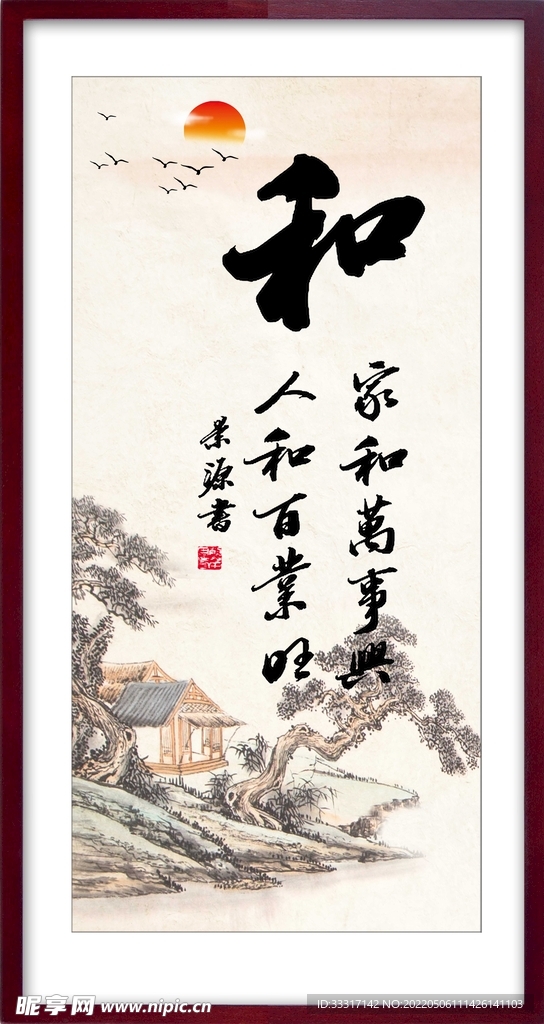 和
家和萬事興
人和百業旺
景源书
昵享网 www.nipic.cn
ID:33317142 NO:20220506111426141103